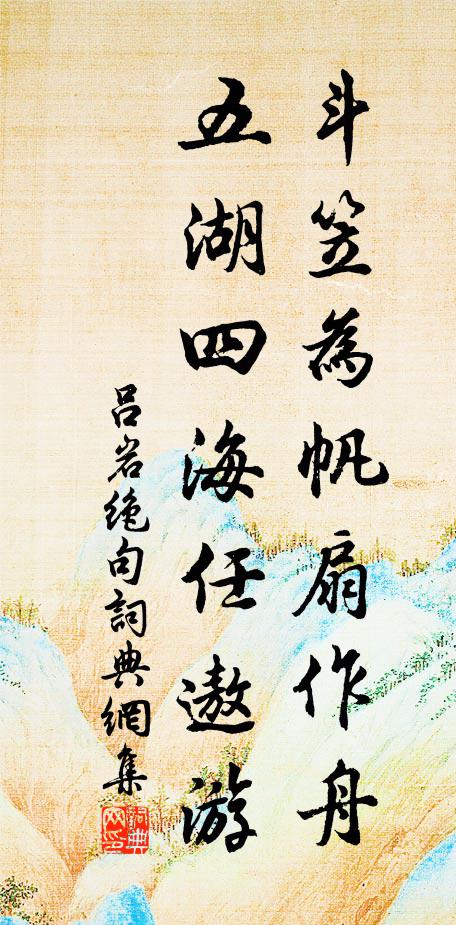 斗笠為帆扇作舟
五湖四海任遨游
吕岩绝句詞典網集